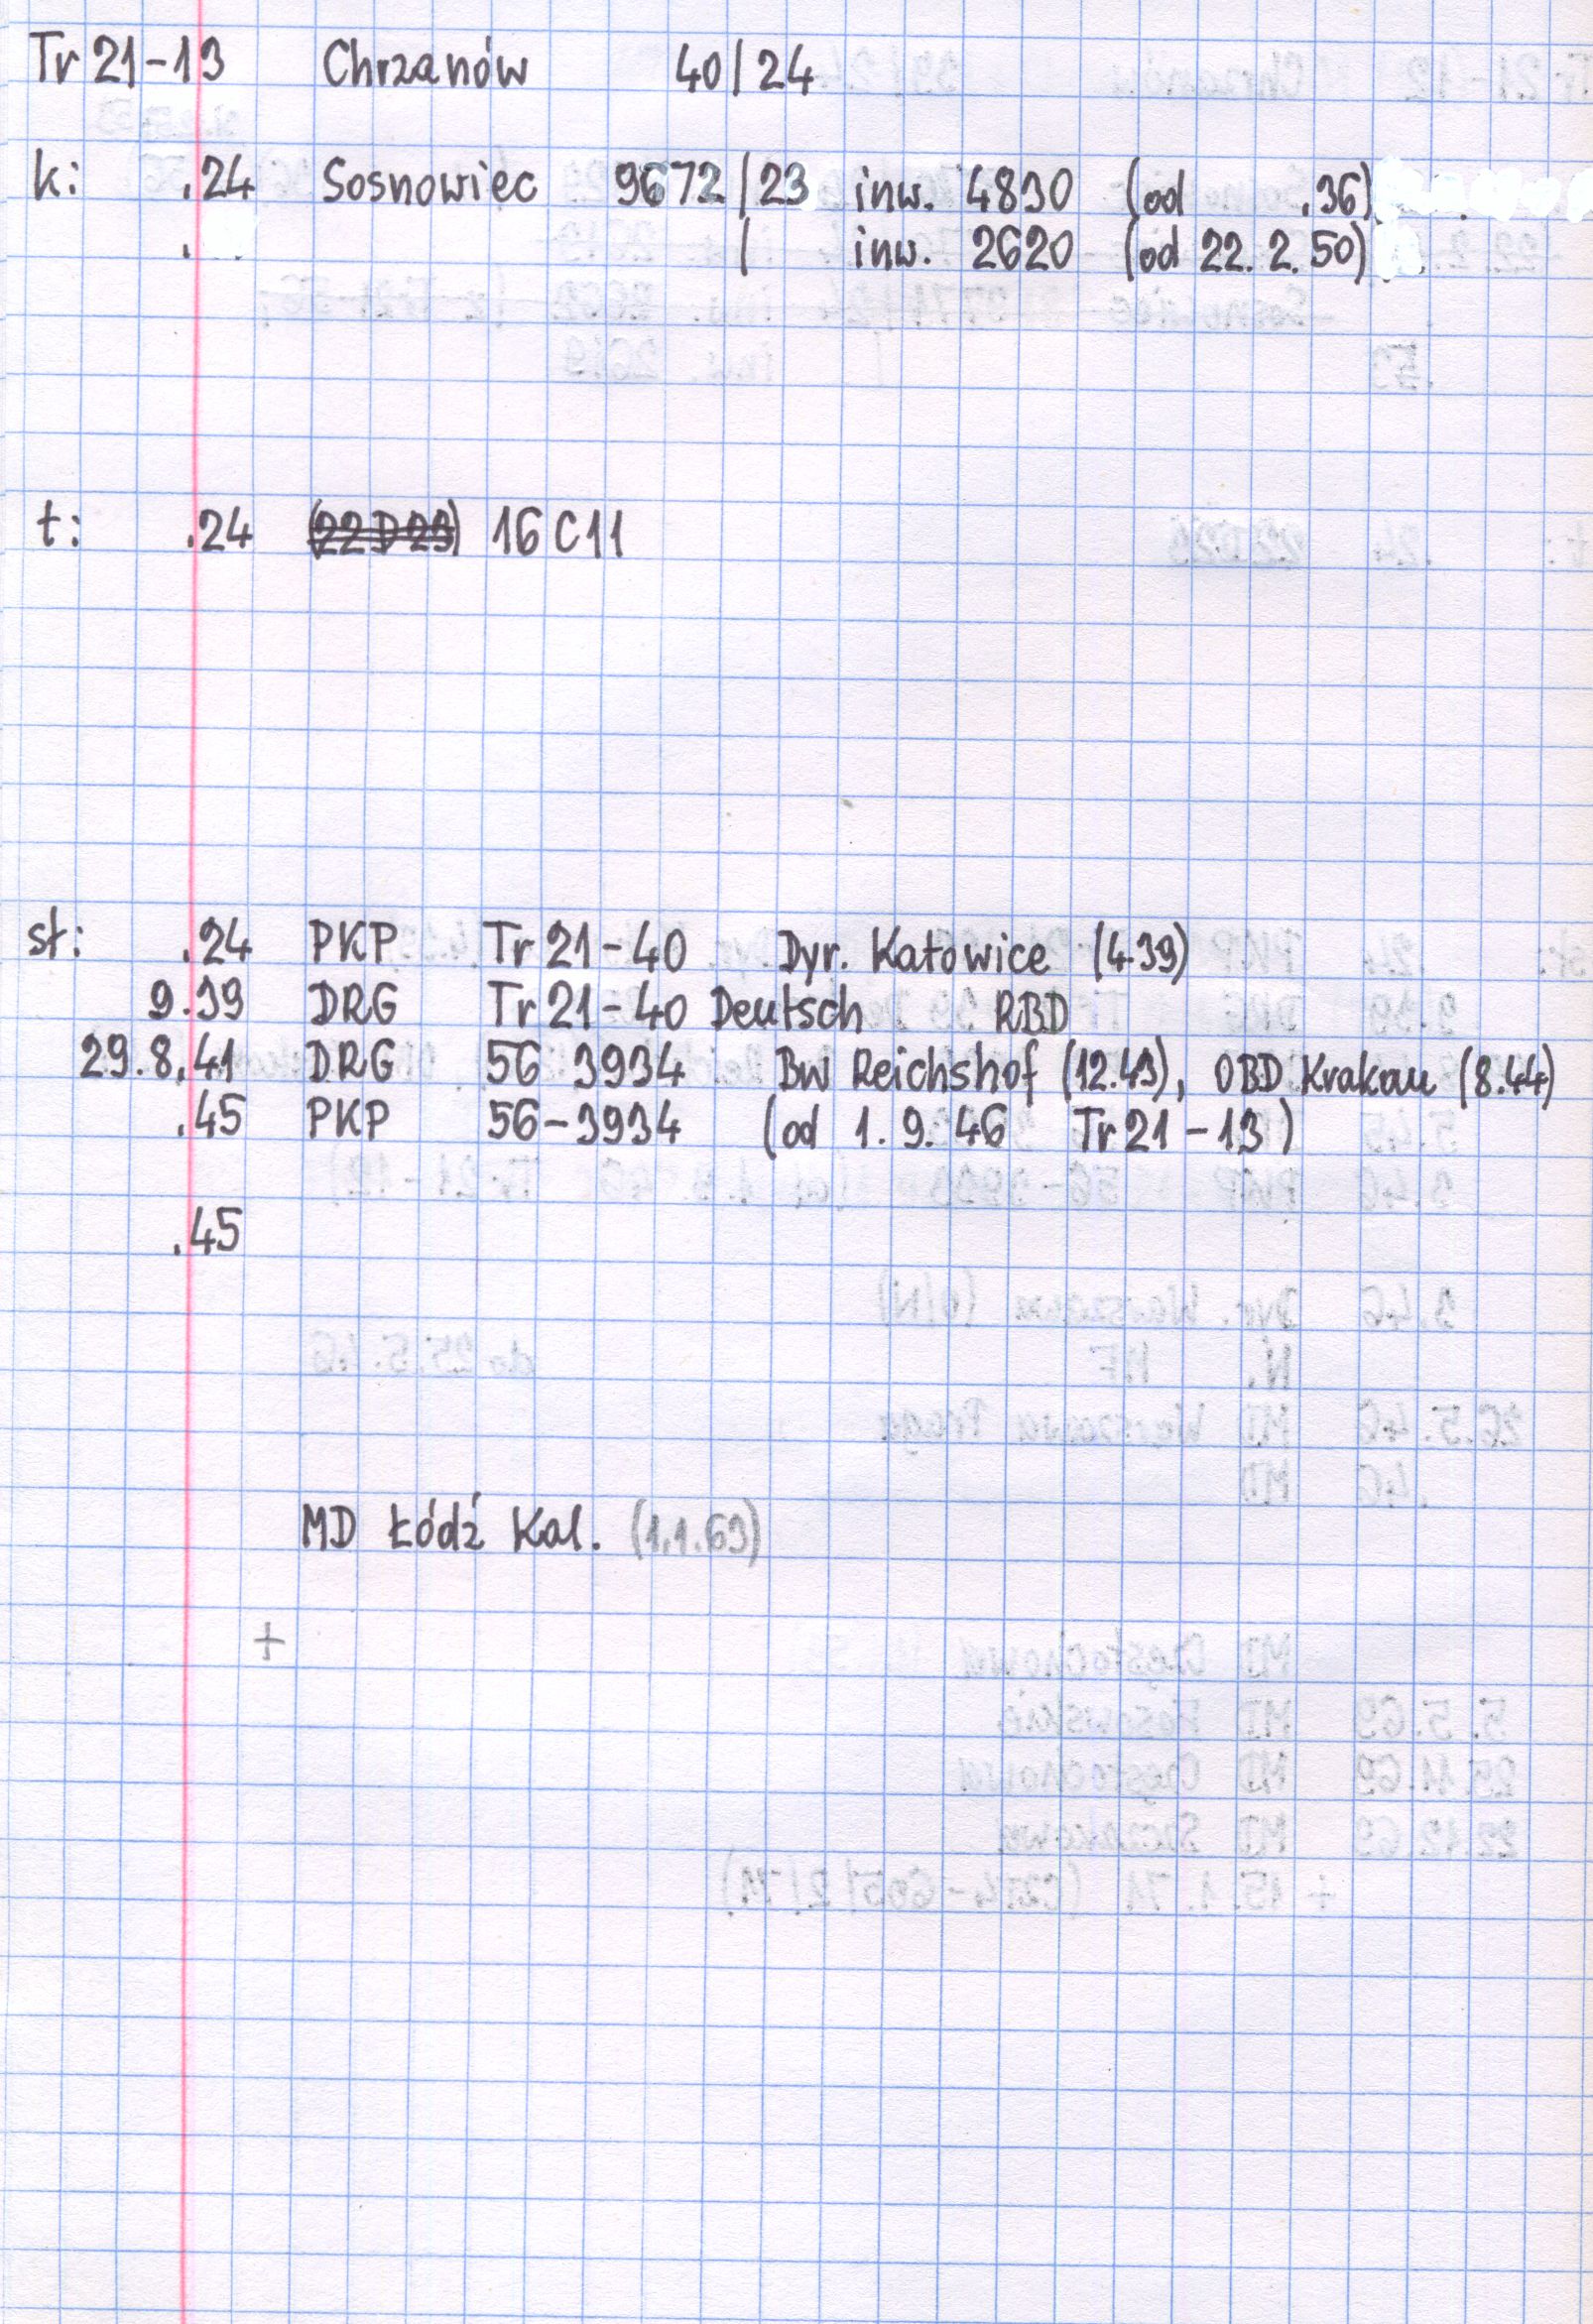 Tr 21-13 Chrzanów 40/24
k: .24 Sosnowiec 9672/23 inw. 4830 (od .36)
. / inw. 2620 (od 22. 2. 50)
t: .24 (22D23) 16C11
st: .24 PKP Tr 21-40 Dyr. Katowice (4.39)
9.39 DRG Tr 21-40 Deutsch RBD
29.8.41 DRG 56 3934 Bw Reichshof (12.43), OBD Krakau (8.44)
.45 PKP 56-3934 (od 1. 9. 46 Tr 21-13)
.45
MD Łódź Kal. (1.1.63)
+